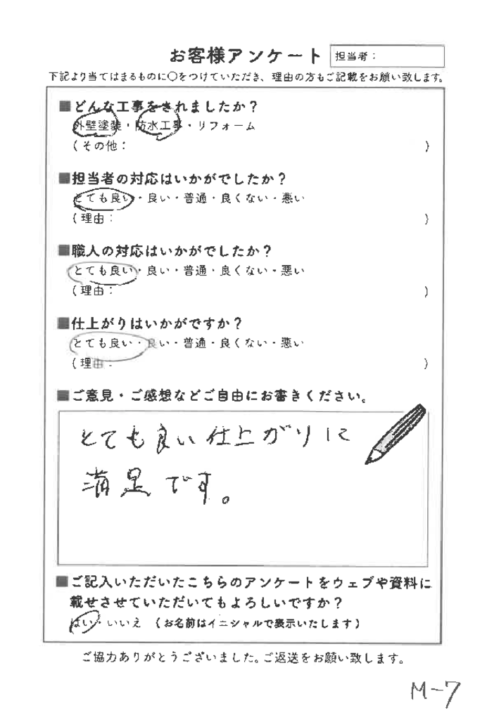 お客様アンケート
担当者：
下記より当てはまるものに○をつけていただき、理由の方もご記載をお願い致します。
■どんな工事をされましたか？
外壁塗装・防水工事・リフォーム
（その他：　　　）
■担当者の対応はいかがでしたか？
とても良い・良い・普通・良くない・悪い
（理由：　　　）
■職人の対応はいかがでしたか？
とても良い・良い・普通・良くない・悪い
（理由：　　　）
■仕上がりはいかがですか？
とても良い・良い・普通・良くない・悪い
（理由：　　　）
■ご意見・ご感想などご自由にお書きください。
とても良い仕上がりに
満足です。
■ご記入いただいたこちらのアンケートをウェブや資料に
載せさせていただいてもよろしいですか？
はい・いいえ （お名前はイニシャルで表示いたします）
ご協力ありがとうございました。ご返送をお願い致します。
M-7